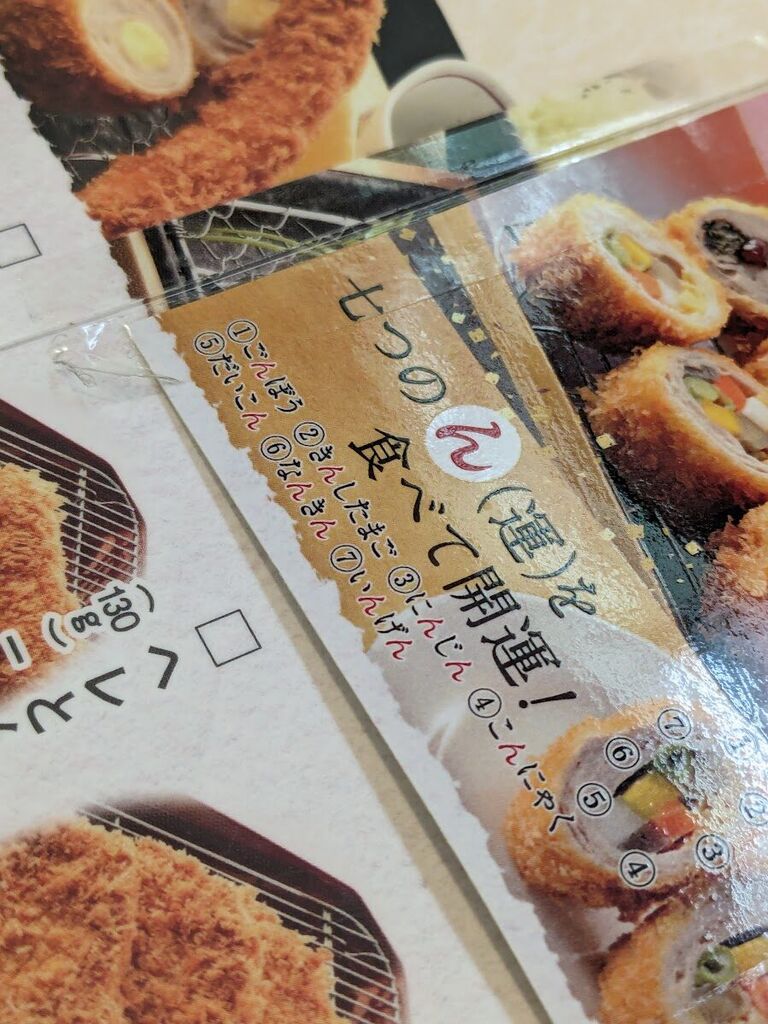 七つの ん (運)を
食べて開運!
①ごんぼう ②きんしたまご ③にんじん ④こんにゃく
⑤だいこん ⑥なんきん ⑦いんげん
⑦
⑥
⑤
④
③
②
130
(g)